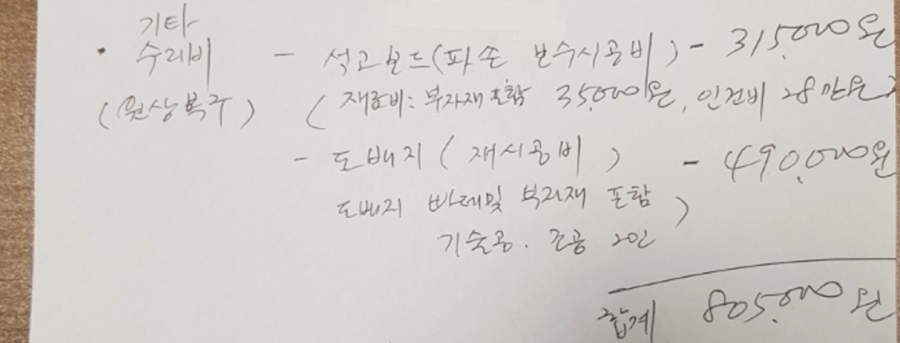 기타
• 수리비 - 석고보드(파손 보수시공비) - 315,000원
(원상복구) (재료비: 부자재 포함 35,000원, 인건비 28만원)
- 도배지 (재시공비) - 490,000원
도배지 빠데및 부자재 포함)
기술공. 조공 2인
합계 805,000원